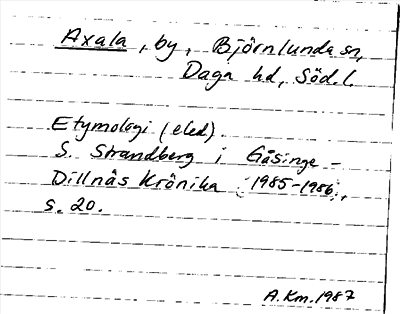 Axala, by, Björnlunda sn,
Daga hd, Söd.l.
Etymologi (eled).
S. Strandberg i Gåsinge-
Dillnäs Krönika (1985-1986),
s. 20.
A.Km.1987